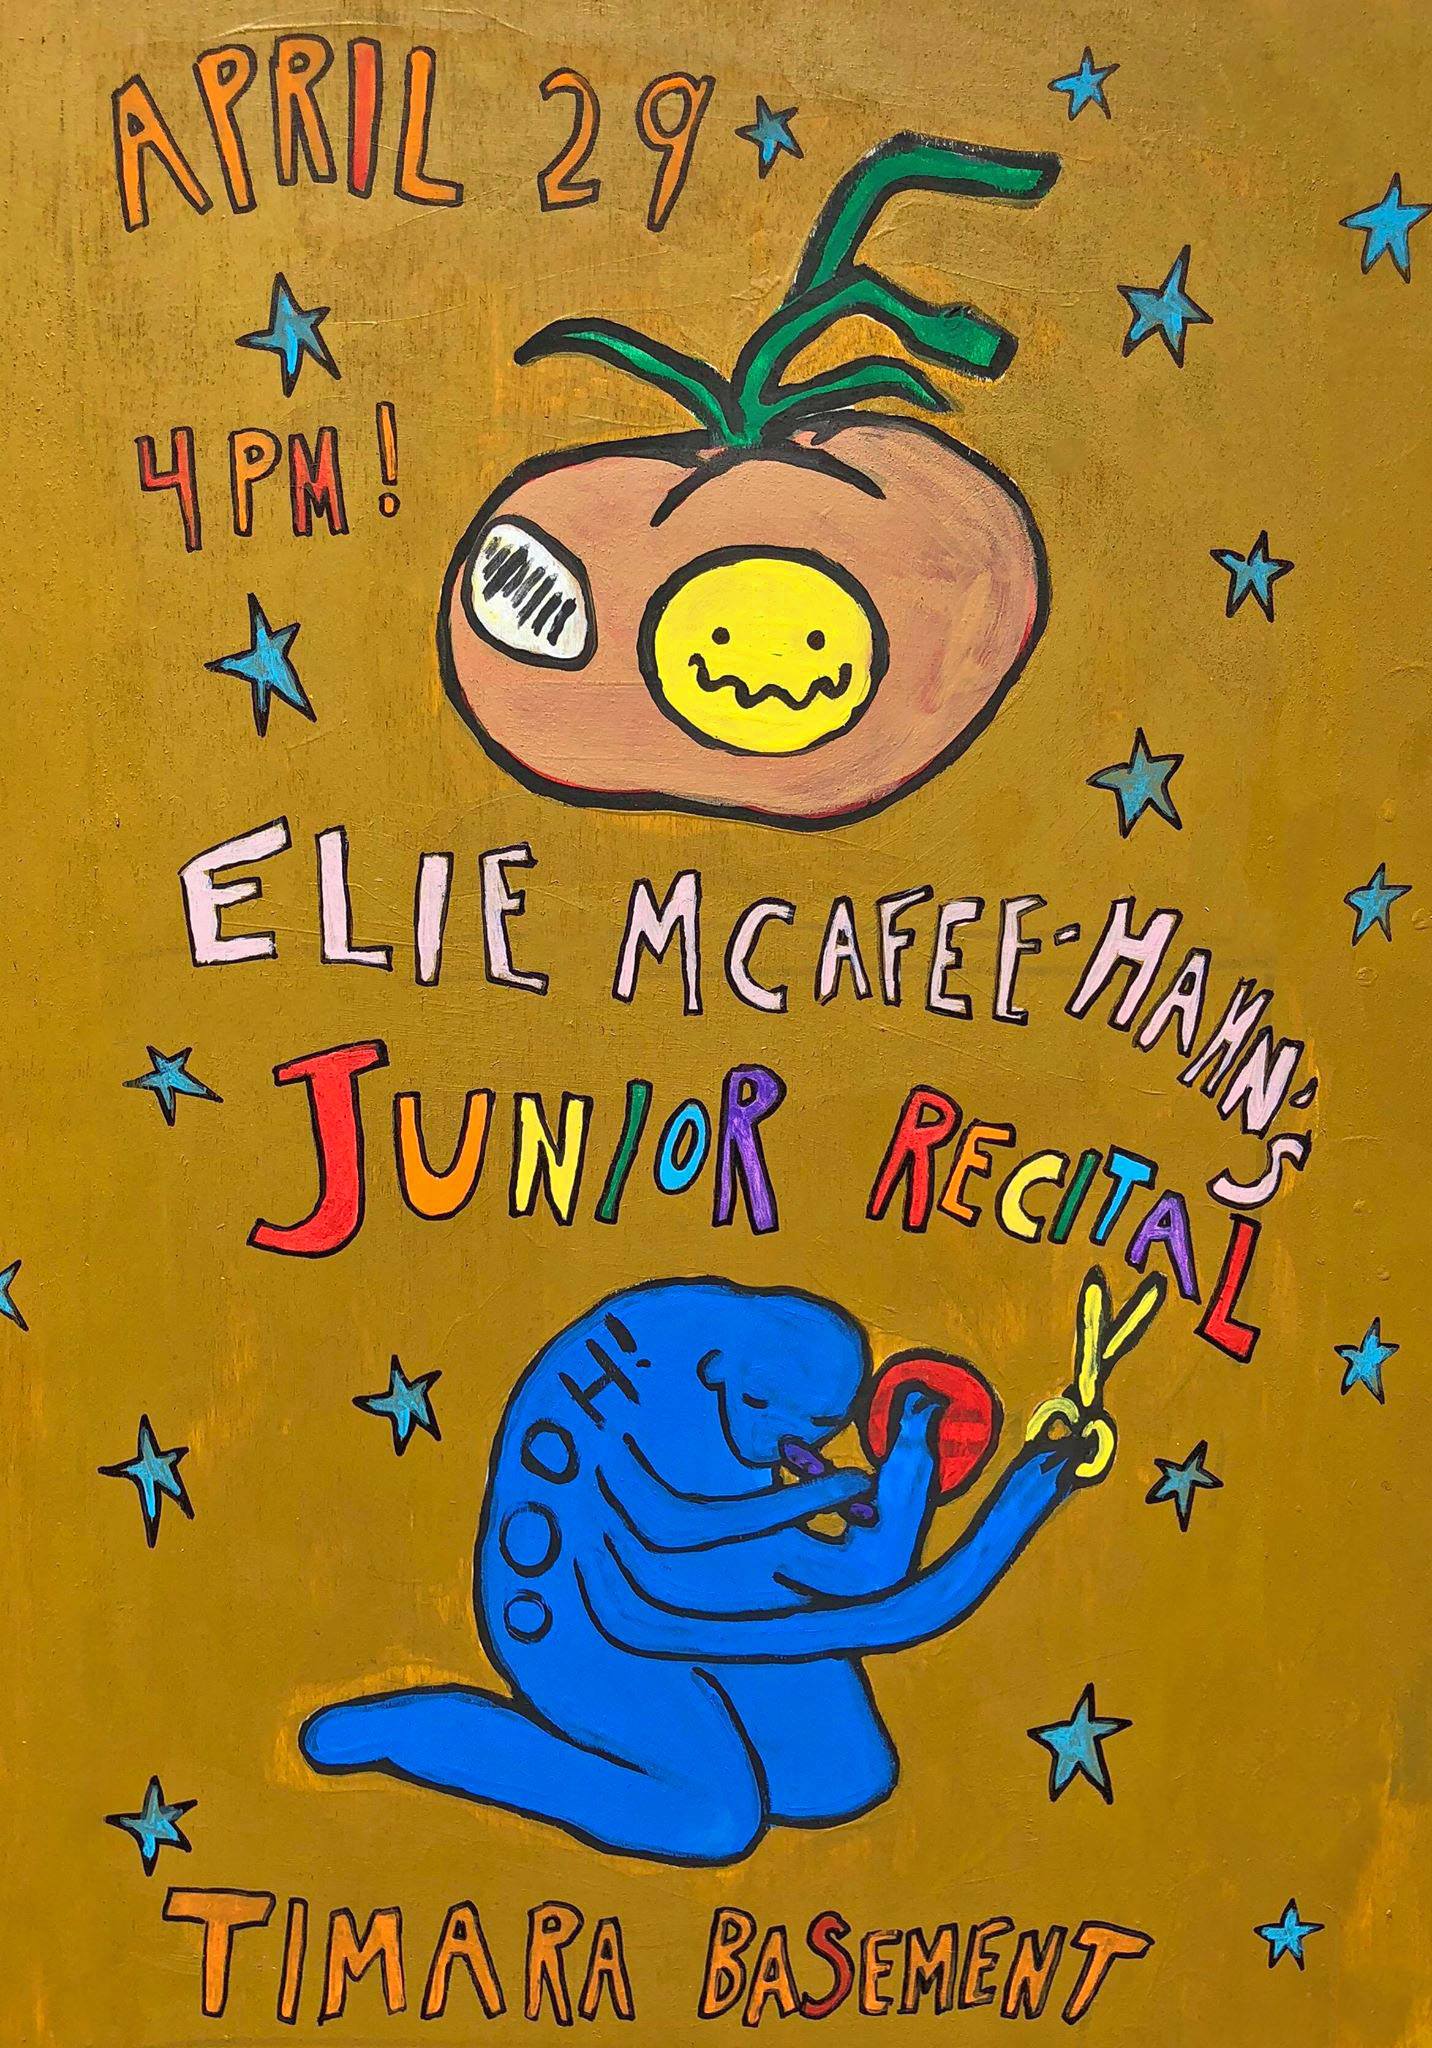 APRIL 29
4PM!
ELIE MCAFEE-HAHN'S
JUNIOR RECITAL
OOOH!
TIMARA BASEMENT